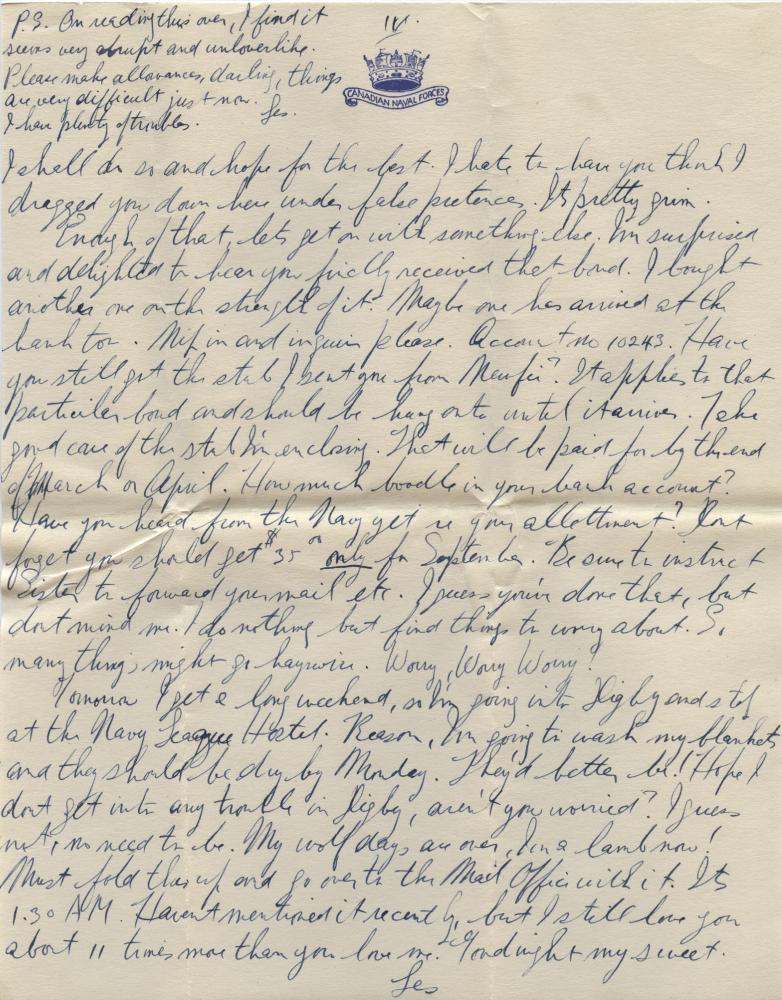 P.S. On reading this over, I find it
seems very abrupt and unloverlike.
Please make allowances, darling, things
are very difficult just now.
I have plenty of troubles. Les.
IV.
CANADIAN NAVAL FORCES
I shall do so and hope for the best. I hate to have you think I
dragged you down here under false pretences. Its pretty grim.
Enough of that, lets get on with something else. Im surprised
and delighted to hear you finally received that bond. I bought
another one on the strength of it. Maybe one has arrived at the
bank too. Nip in and inquire please. Account no 10243. Have
you still got the stub I sent you from Newfie? It applies to that
particular bond and should be hung onto until it arrives. Take
good care of the stub I'm enclosing. That will be paid for by the end
of March or April. How much boodle in your bank account?
Have you heard from the Navy yet re your allottment? Dont
forget you should get $35 only for September. Be sure to instruct
Sister to forward your mail etc. I guess you've done that, but
dont mind me. I do nothing but find things to worry about. So
many things might go haywire. Worry, Worry Worry!
Tomorrow I get a long weekend, so I'm going into Digby and stop
at the Navy League Hostel. Reason, I'm going to wash my blankets
and they should be dry by Monday. They'd better be! Hope I
dont get into any trouble in Digby, aren't you worried? I guess
not, no need to be. My wolf days are over, Im a lamb now!
Must fold this up and go over to the Mail Office with it. Its
1.30 AM. Havent mentioned it recently, but I still love you
about 11 times more than you love me. Goodnight my sweet.
Les